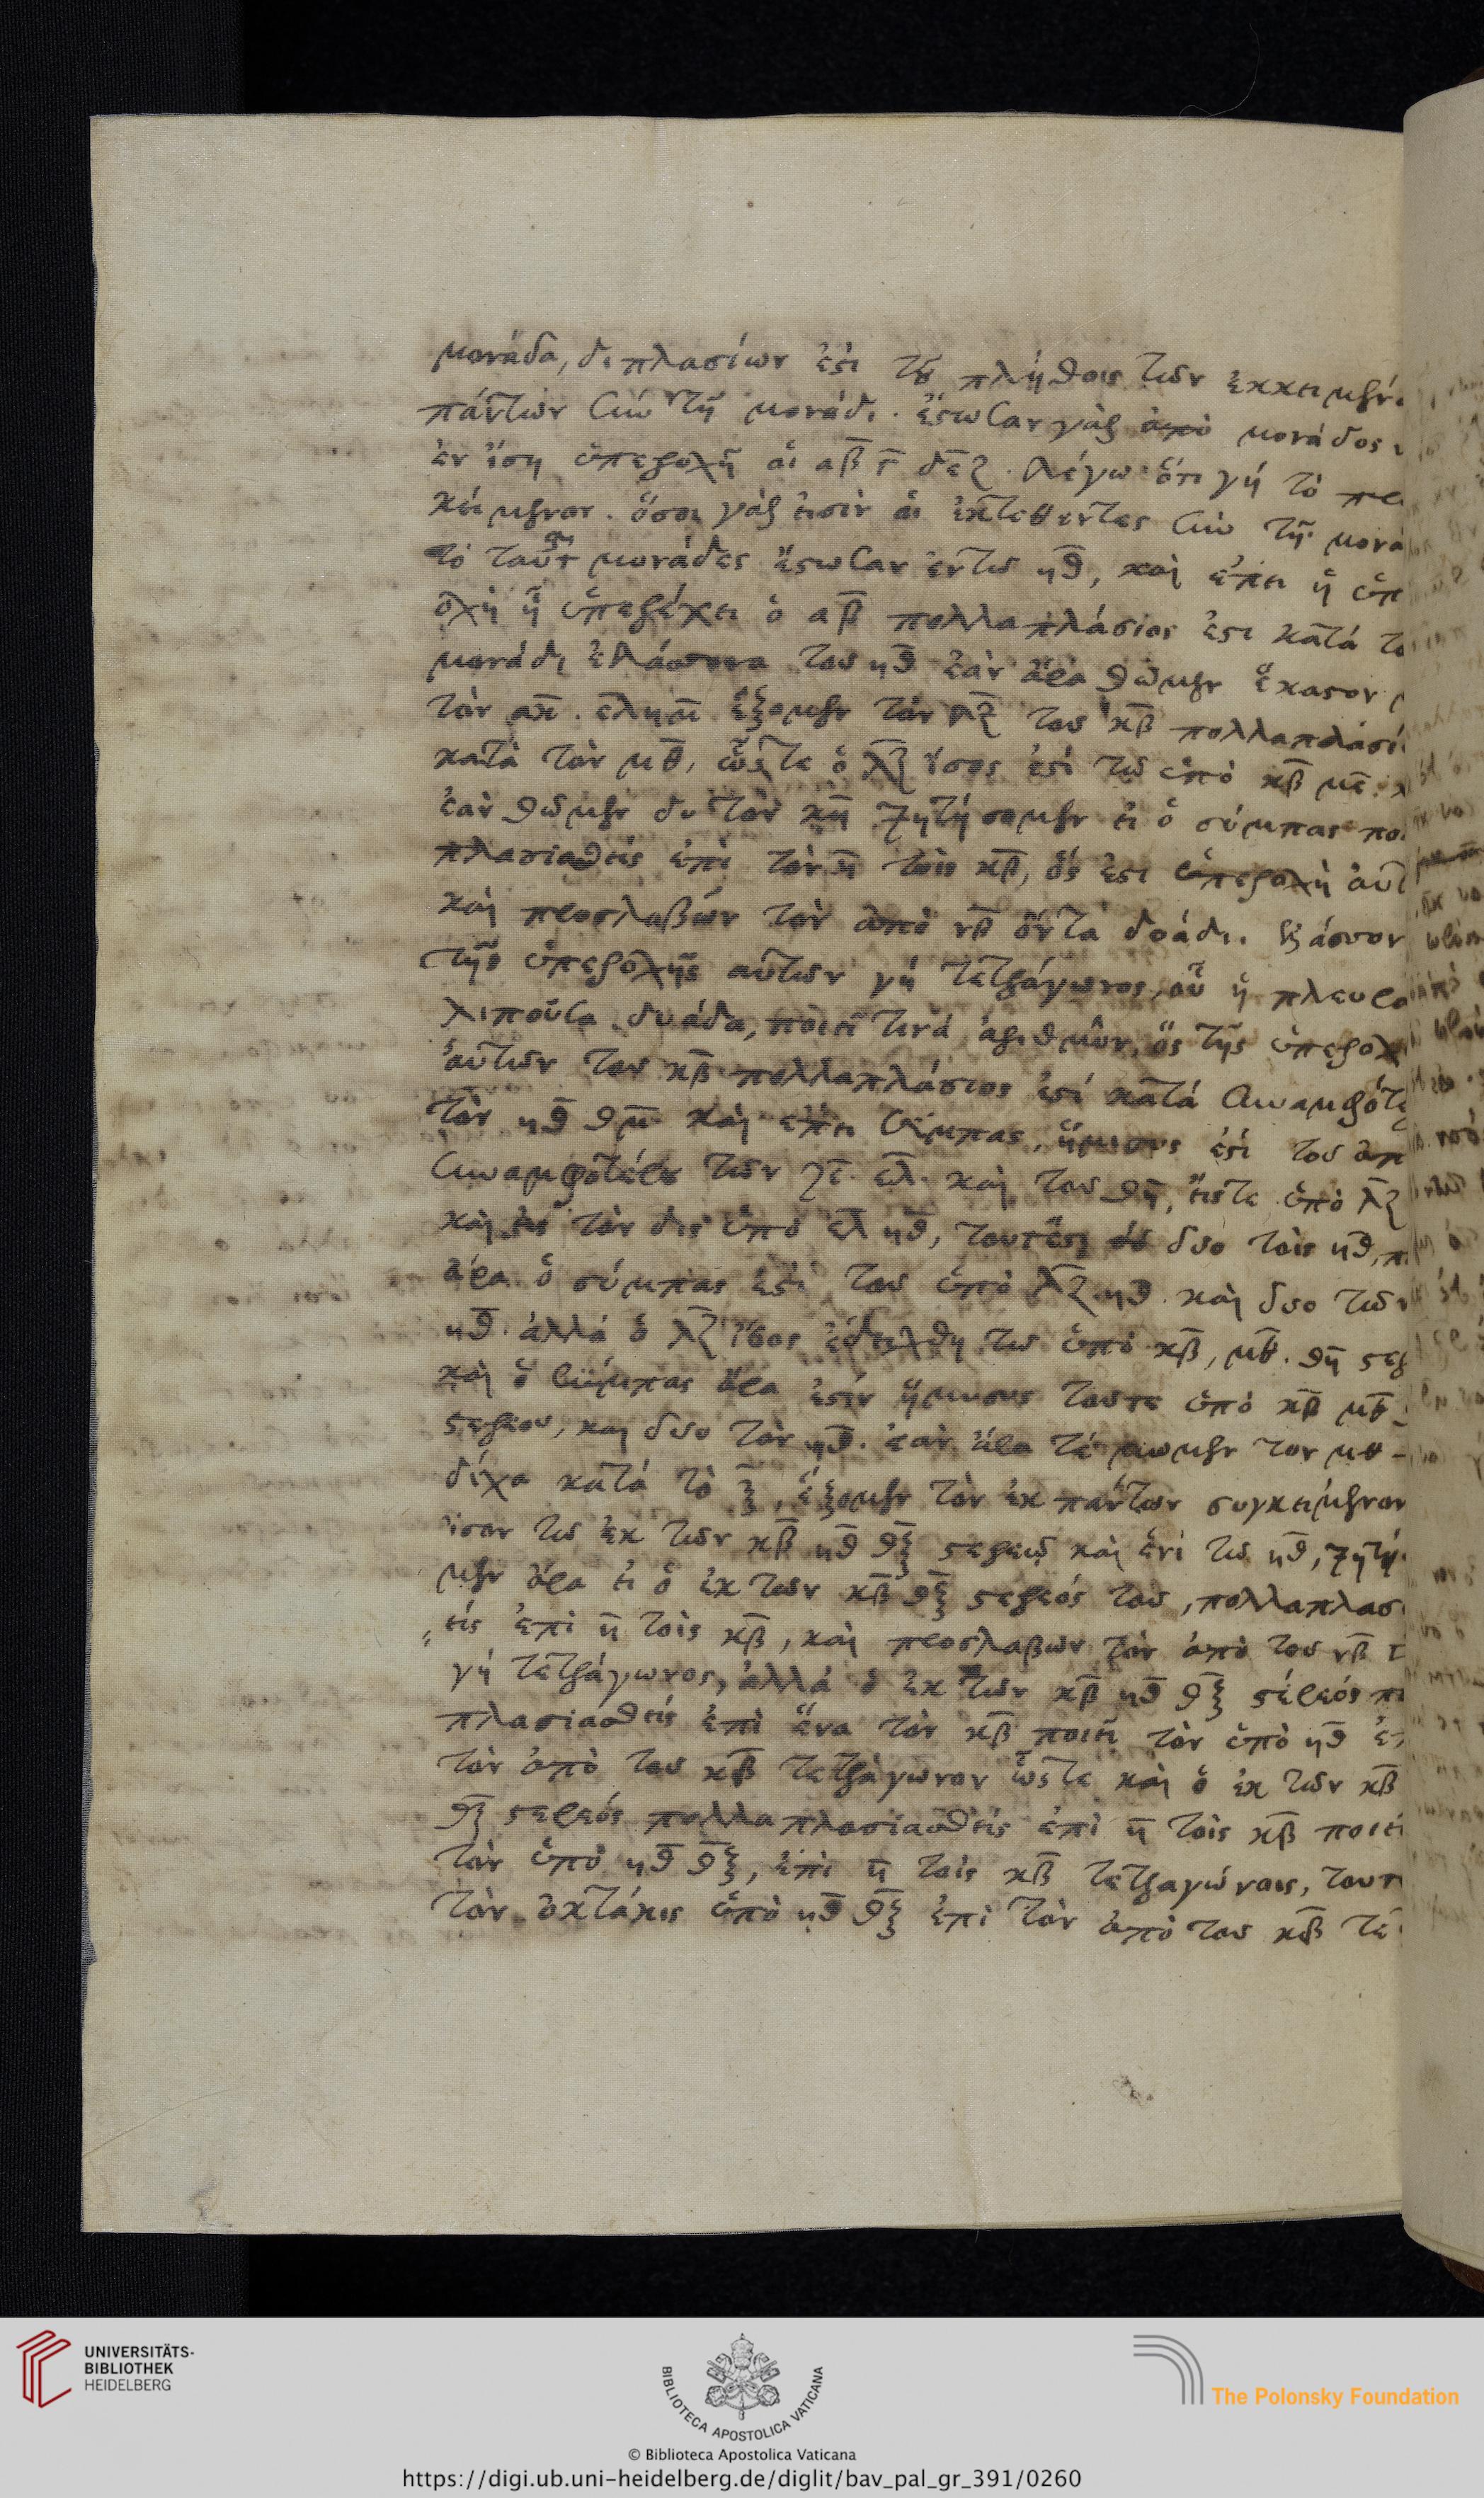 μονάδα, διπλασίων ἐστι τοῦ πλήθους τῶν ἐκκειμέν
πάντων σὺν τῇ μονάδι. ἔστωσαν γὰρ ἀπὸ μονάδος
ἐν ἴσῃ ὑπεροχῇ οἱ αβ γ δε ζ. λέγω ὅτι γὴ τὸ προ
κείμενον. ὅσοι γὰρ εἰσὶν οἱ ἐκτεθέντες σὺν τῇ μονά
μονάδες ἔστωσαν ἐν τῶ ηθ, καὶ ἐπεὶ ἡ ὑπε
οχὴ ᾗ ὑπερέχει ὁ αβ πολλαπλάσιος ἐστι κατὰ το
μονάδι ἐλάσσονα τοῦ ηθ ἐὰν ἄρα θῶμεν ἕκαστον
τὸν ἕξομεν τὸν λζ τοῦ κβ πολλαπλάσι
κατὰ τὸν μθ, ὥστε ὁ λζ ἴσος ἐστὶ τῶ ὑπὸ κβ με.
ἐὰν θῶμεν δυ τὸν κη ζητήσομεν εἰ ὁ σύμπας πο
πλασιασθεὶς ἐπὶ τὸν η τοῖς κβ, ὅς ἐστι ὑπεροχὴ αὐτ
καὶ προσλαβὼν τὸν ἀπὸ νβ ὄντα δυάδι. ἐλάσσον
τῆς ὑπεροχῆς αὐτῶν γὴ τετράγωνος, οὗ ἡ πλευρα
λιποῦσα δυάδα, ποιεῖ τινὰ ἀριθμὸν, ὃς τῆς ὑπεροχ
αὐτῶν τοῦ κβ πολλαπλάσιος ἐστὶ κατὰ συναμφότε
τὸν ηθ θμ καὶ ἐπεὶ σύμπας, ἥμισυς ἐστὶ τοῦ ὑπ
συναμφοτέρου τῶν ζε. ελ. καὶ τοῦ θη, εἴστε ὑπὸ λζ
καὶ εἰς τὸν δὶς ὑπὸ ελ ηθ, τουτέστι δυο τοῖς ηθ, π
ἄρα ὁ σύμπας ἐστὶ τοῦ ὑπὸ λζ ηθ. καὶ δυο τῶν
ηθ. ἀλλὰ ὁ λζ ἴσος ἐδείχθη τῶ ὑπὸ κβ, μθ. θη στερ
καὶ ὁ σύμπας ἄρα ἐστὶν ἥμισυς τοῦτε ὑπὸ κβ μθ
στερεου, και δυο τὸν ηθ. ἐὰν ἄρα τέμωμεν τον μθ
δίχα κατὰ τὸ ξ, ἕξομεν τὸν ἐκ πάντων συγκείμενον
ἴσον τῶ ἐκ τῶν κβ ηθ θξ στερεῶ καὶ ἑνὶ τῶ ηθ, ζητή
μεν ἄρα εἰ ὁ ἐκ τῶν κβ θξ στερεός του, πολλαπλασ
εὶς ἐπὶ η τοῖς κβ, καὶ προσλαβὼν τὸν ἀπὸ τοῦ νβ τ
γὴ τετράγωνος, ἀλλὰ ὁ ἐκ τῶν κβ ηθ θξ στερεός π
πλασιασθεὶς ἐπὶ ἕνα τὸν κβ ποιεῖ τὸν ὑπὸ ηθ ἐπ
τὸν ἀπὸ τοῦ κβ τετράγωνον ὥστε καὶ ὁ ἐκ τῶν κβ
θξ στερεός πολλαπλασιασθεὶς ἐπὶ η τοῖς κβ ποιεῖ
τὸν ὑπὸ ηθ θξ, ἐπὶ η τοῖς κβ τετραγώνοις, τουτ
τὸν ὀκτάκις ὑπὸ ηθ θξ ἐπὶ τὸν ἀπὸ τοῦ κβ τε
UNIVERSITÄTS-
BIBLIOTHEK
HEIDELBERG
BIBLIOTECA APOSTOLICA VATICANA
The Polonsky Foundation
© Biblioteca Apostolica Vaticana
https://digi.ub.uni-heidelberg.de/diglit/bav_pal_gr_391/0260